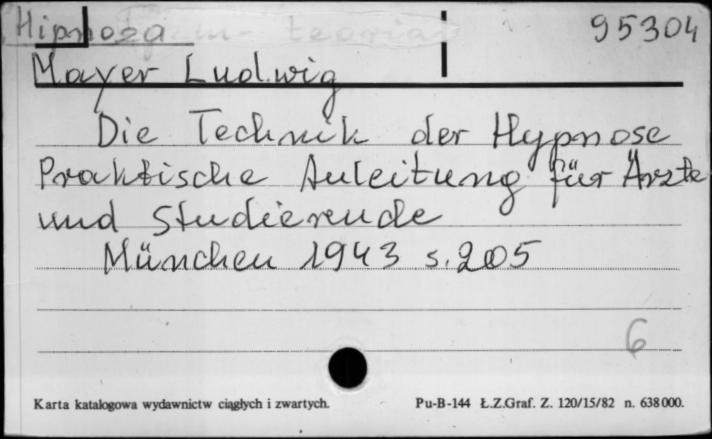 Hipnoza teoria 95304
Mayer Ludwig
Die Technik der Hypnose
Praktische Anleitung für Ärzte
und Studierende
München 1943 s. 205
6
Karta katalogowa wydawnictw ciągłych i zwartych. Pu-B-144 Ł.Z.Graf. Z. 120/15/82 n. 638000.